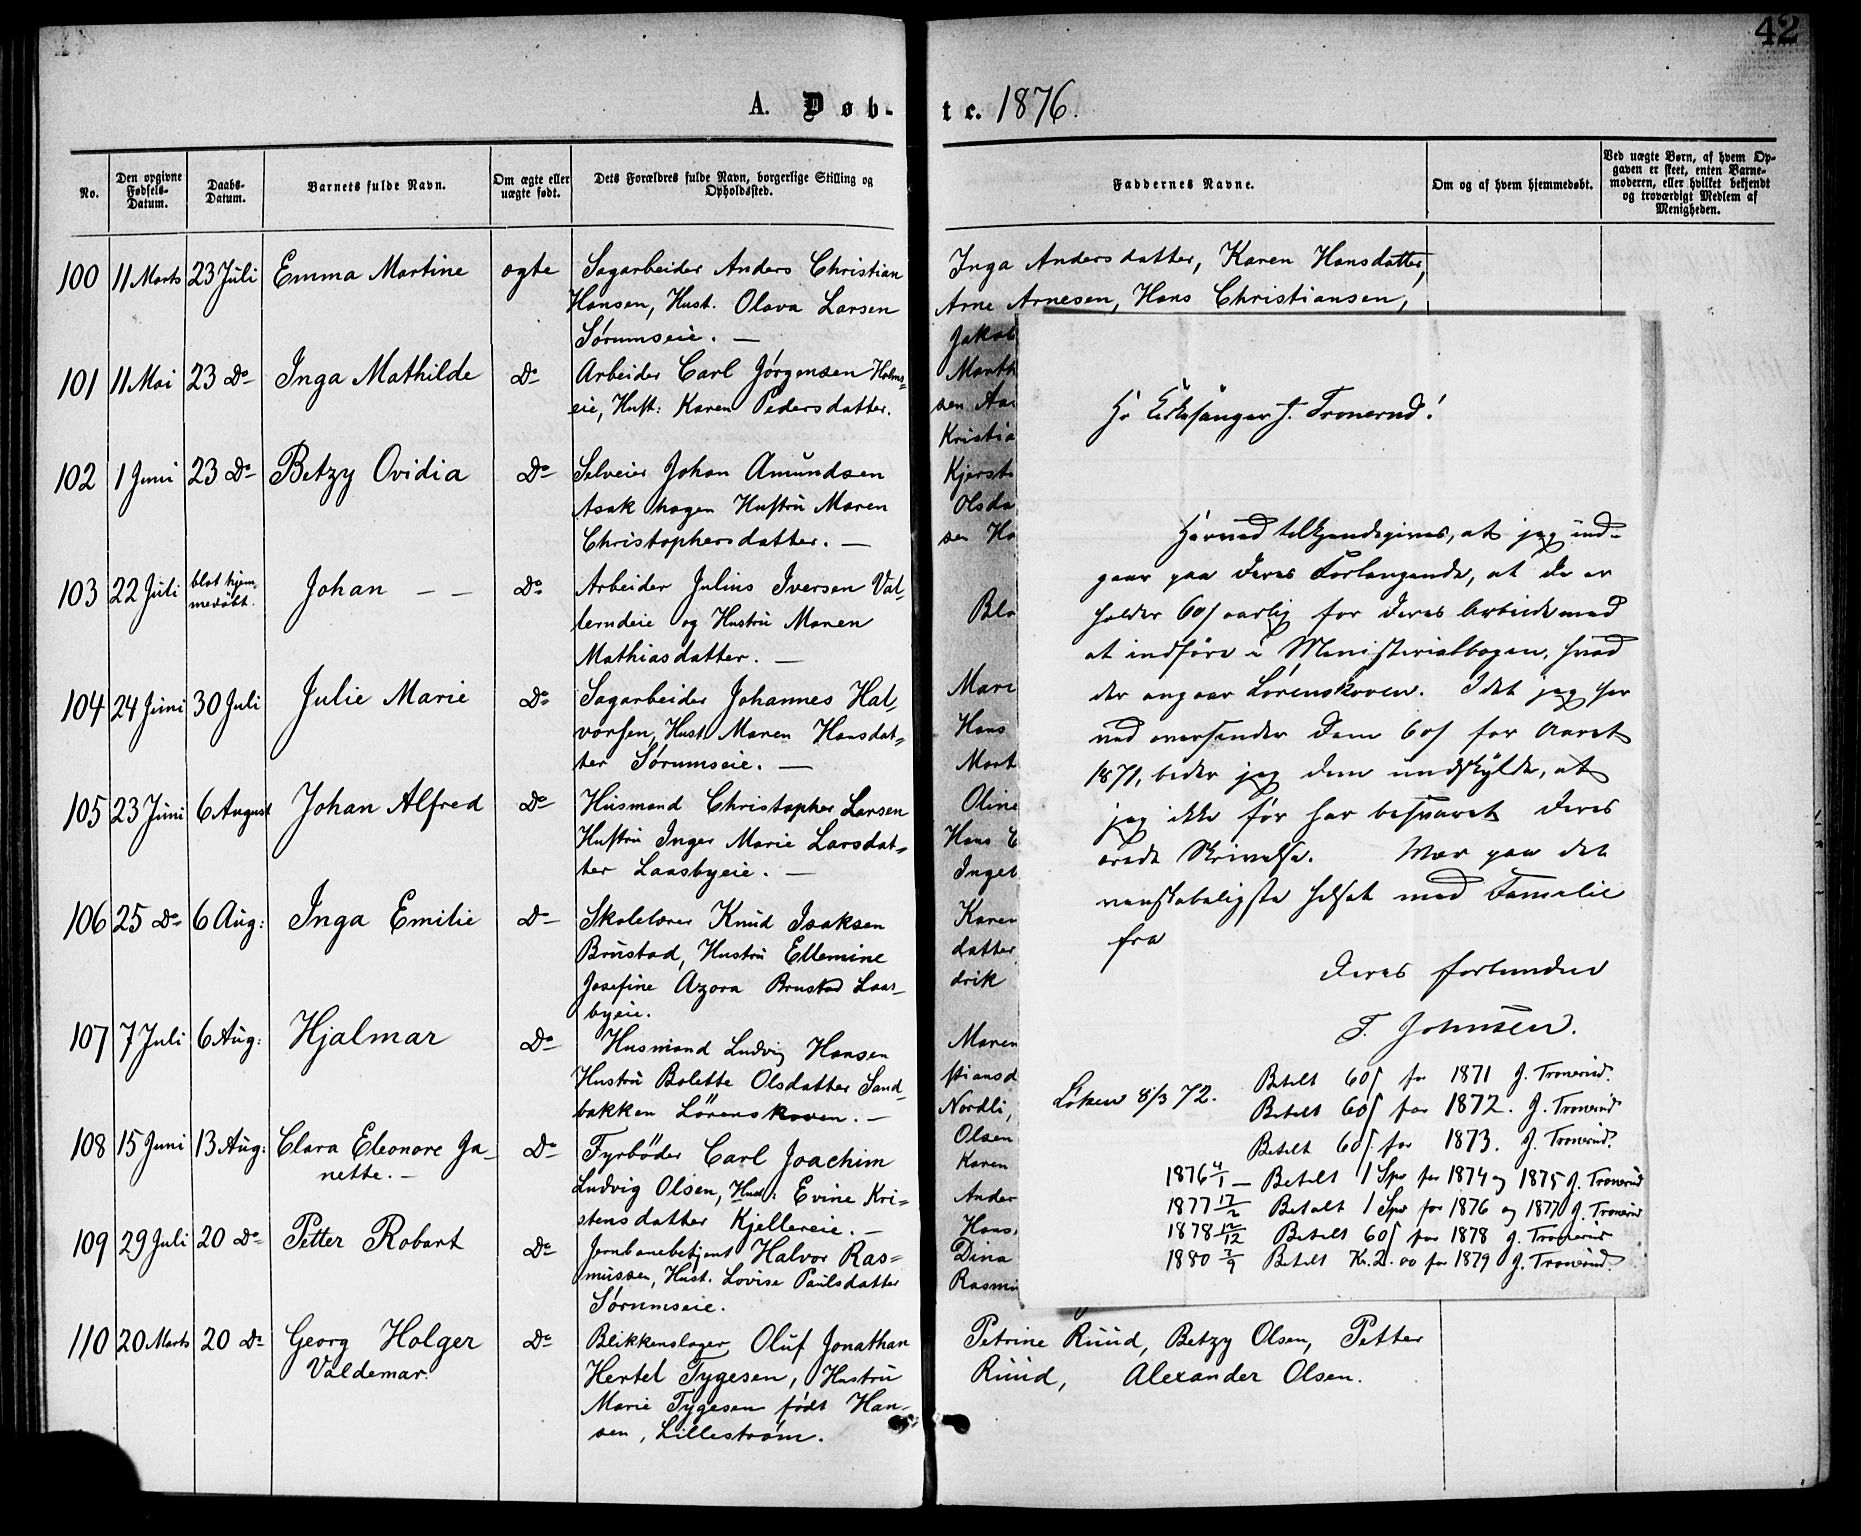 42
A. Døb-
te. 1876.
No.
Den opgivne Fødsels-Datum.
Daabs-Datum.
Barnets fulde Navn.
Om ægte eller uægte født.
Dets Forældres fulde Navn, borgerlige Stilling og Opholdssted.
Faddernes Navne.
Om og af hvem hjemmedøbt.
Ved uægte Børn, af hvem Op-
gaven er skeet, enten Barne-
moderen, eller hvilket bekjendt
og troværdigt Medlem af
Menigheden.
100 11 Marts 23 Juli Emma Martine ægte Sagarbeider Anders Christian
Hansen, Hust. Olava Larsen
Sørumseie. —
101 11 Mai 23 Do Inga Mathilde Do Arbeider Carl Jørgensen Holms-
eie, Hust: Karen Pedersdatter.
102 1 Juni 23 Do Betzy Ovidia Do Selveier Johan Amundsen
Asak hagen Hustru Maren
Christophersdatter. —
103 22 Juli blot hjem-
medøbt. Johan — — Do Arbeider Julius Iversen Val-
lerudeie og Hustru Maren
Mathiasdatter. —
104 24 Juni 30 Juli Julie Marie Do Sagarbeider Johannes Hal-
vorsen, Hust. Maren Hansdat-
ter Sørumseie. —
105 23 Juni 6 August Johan Alfred Do Husmand Christopher Larsen
Hustru Inger Marie Larsdat-
ter Laasbyeie. —
106 25 Do 6 Aug: Inga Emilie Do Skolelærer Knud Isaksen
Brustad, Hustru Ellemine
Josefine Azora Brustad Laas-
byeie.
107 7 Juli 6 Aug: Hjalmar Do Husmand Ludvig Hansen
Hustru Bolette Olsdatter Sand-
bakken Lörenskoven. —
108 15 Juni 13 Aug: Clara Eleonore Ja-
nette. — Do Fyrböder Carl Joachim
Ludvig Olsen, Hust: Evine Kri-
stensdatter Kjellereie. —
109 29 Juli 20 Do Petter Robart Do Jernbanebetjent Halvor Ras-
mussen, Hust. Lovise Paulsdatter
Sørumseie.
110 20 Marts 20 Do Georg Holger
Valdemar. Do Blikkenslager Oluf Jonathan
Hertel Tygesen, Hustru
Marie Tygesen født Han-
sen, Lillestrøm.
Inga Andersdatter, Karen Hansdatter,
Arne Arnesen, Hans Christiansen,
Jakob
Marth
sen Aa
Kristia
Kjerst
Olsda
sen Ha
Blo
Mari
Hans
Mart
Oline
Hans C
Inget
Karen
datter
drik
Maren
stiansd
Nordli,
Olsen
Karen
Ander
Hans
Dina
Rasmu
Petrine Ruud, Betzy Olsen, Petter
Ruud, Alexander Olsen.
Hr Kirkesanger J. Tronerud!
Herved tilkjendegives, at jeg ind-
gaar paa Deres Forlangende, at De er
holder 60 s aarlig for Deres Arbeide med
at indföre i Ministerialbogen, hvad
der angaar Lörenskoven. Idet jeg her
ved oversender Dem 60 s for Aaret
1871, beder jeg Dem undskylde, at
jeg ikke för har besvaret Deres
ærede Skrivelse. Vær paa det
venskabeligste hilset med Familie
fra
Deres forbundne
T. Johnsen.
Löken 8/3 72.
Betalt 60 s for 1871 J. Tronerud.
Betalt 60 s for 1872. J. Tronerud
Betalt 60 s for 1873. J. Tronerud.
1876 4/1 — Betalt 1 Spd for 1874 og 1875 J. Tronerud
1877 17/2 Betalt 1 Spd for 1876 og 1877 J. Tronerud
1878 12/12 Betalt 60 s for 1878 J. Tronerud
1880 7/9 Betalt Kr. 2.00 for 1879 J. Tronerud.